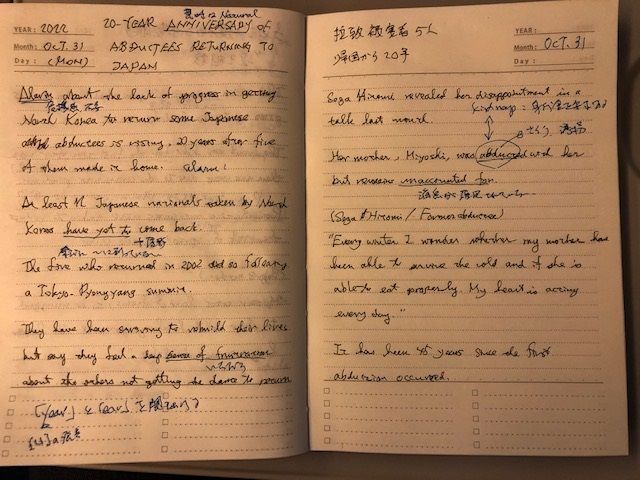 YEAR: 2022
Month: OCT. 31
Day: (MON)
20-YEAR ANNIVERSARY of
ABDUCTEES RETURNING TO
JAPAN
Alarm about the lack of progress in getting
North Korea to return some Japanese
abductees is rising, 20 years after five
of them made it home. alarm:
At least 12 Japanese nationals taken by North
Korea have yet to come back.
The five who returned in 2002 did so following
a Tokyo-Pyongyang summit.
They have been striving to rebuild their lives
but say they feel a deep sense of frustration
about the others not getting the chance to return
拉致被害者 5人
帰国から 20年
YEAR:
Month: OCT. 31
Day:
Soga Hitomi revealed her disappointment in a
talk last month.
kidnap:
Her mother, Miyoshi, was abducted with her
but remains unaccounted for.
(Soga Hitomi / Former abductee)
"Every winter I wonder whether my mother has
been able to survive the cold and if she is
able to eat properly. My heart is aching
every day."
It has been 45 years since the first
abduction occurred.